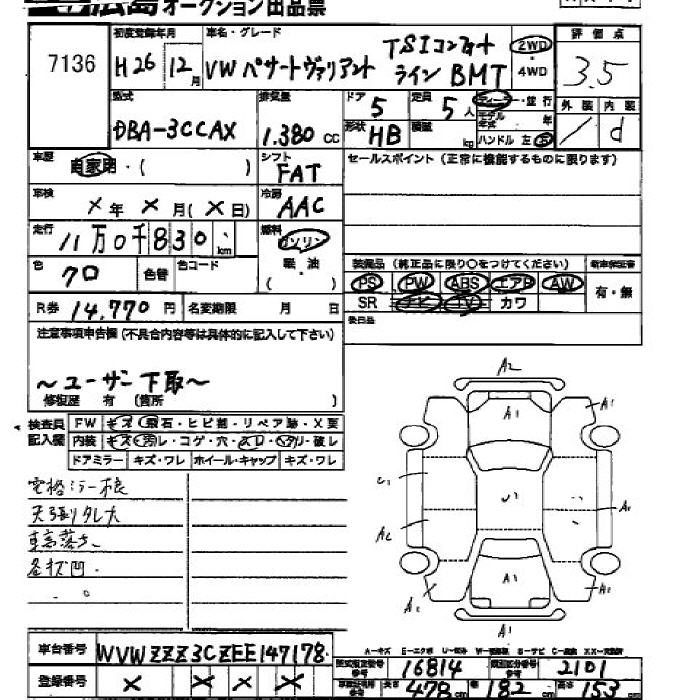 広島オークション出品票
7136
初度登録年月
H26年 12月
車名・グレード
VW パサートヴァリアント TSIコンフォートライン BMT
2WD・4WD
評価点
3.5
型式
DBA-3CCAX
排気量
1.380 cc
ドア 5
形状 HB
定員 5人
積載 kg
ディーラー・並行
モデル年式 年
ハンドル 左 右
外装 内装
/ d
車歴
自家用・( )
シフト
FAT
セールスポイント(正常に機能するものに限ります)
車検
×年×月(×日)
冷房
AAC
走行
11万0千830 km
燃料
ガソリン
軽・油
( )
色
クロ
色替
色コード
装備品(純正品に限り○をつけてください)
新車保証書
PS PW ABS エアB AW
SR ナビ TV カワ
有・無
R券 14,770円
名変期限 月 日
後日品
注意事項申告欄(不具合内容等は具体的に記入して下さい)
〜ユーザー下取〜
修復歴 有 (箇所 )
検査員記入欄
FW キズ・飛石・ヒビ割・リペア跡・X要
内装 キズ・汚レ・コゲ・穴・スレ・ヘタリ・破レ
ドアミラー キズ・ワレ ホイール・キャップ キズ・ワレ
電格ミラー不良
天張りタレ大
各状凹
A2
A1
A1
U1
A1
A2
A1
A1
車台番号
WVWZZZ3CZEE147178
登録番号
× × × ×
型式指定番号
16814
類別区分番号
2101
長さ 478cm 幅 182cm 高さ 153cm